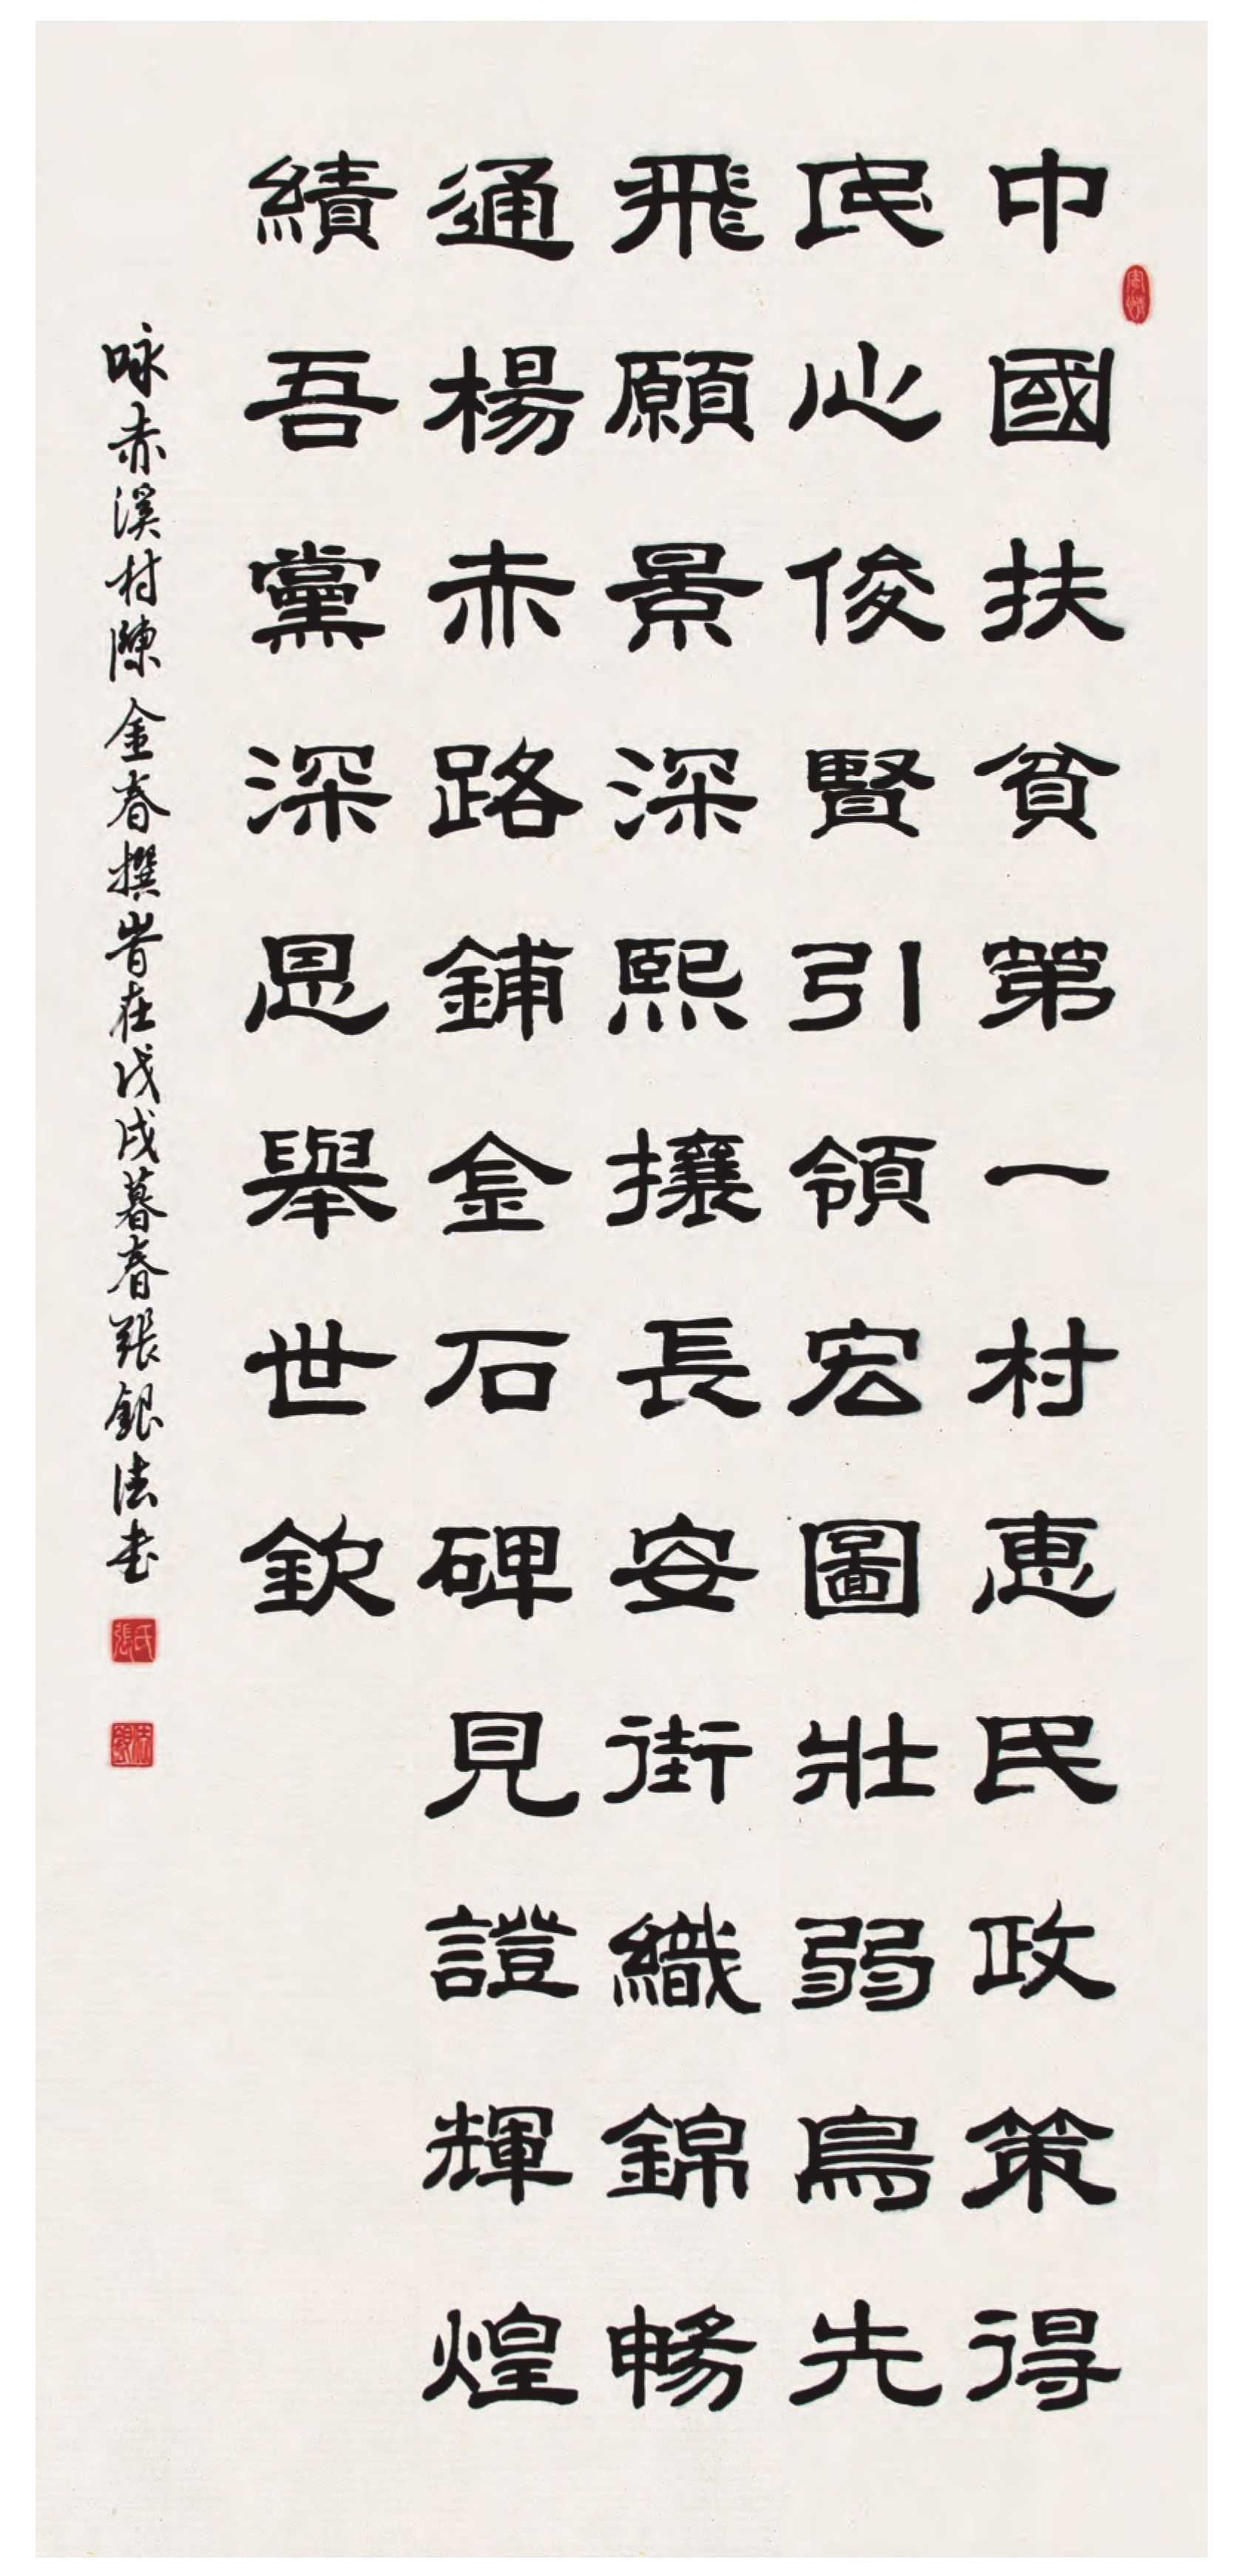 中國扶貧第一村惠民政策得
民心俊賢引領宏圖壯弱鳥先
飛願景深熙攘長安街織錦暢
通楊赤路鋪金石碑見證輝煌
績吾黨深恩舉世欽
咏赤溪村陳金春撰旹在戊戌暮春張銀法书
張氏